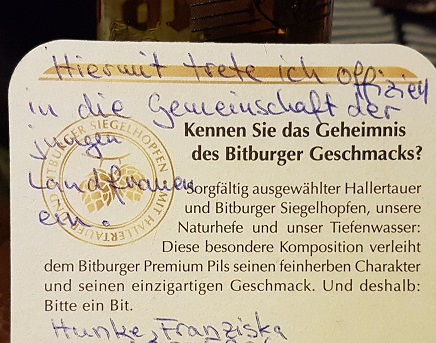 Hiermit trete ich offiziell
in die Gemeinschaft der
jungen
Landfrauen
ein.
BITBURGER SIEGELHOPFEN MIT HALLERTAUER
Kennen Sie das Geheimnis
des Bitburger Geschmacks?
sorgfältig ausgewählter Hallertauer
und Bitburger Siegelhopfen, unsere
Naturhefe und unser Tiefenwasser:
Diese besondere Komposition verleiht
dem Bitburger Premium Pils seinen feinherben Charakter
und seinen einzigartigen Geschmack. Und deshalb:
Bitte ein Bit.
Hunke, Franziska